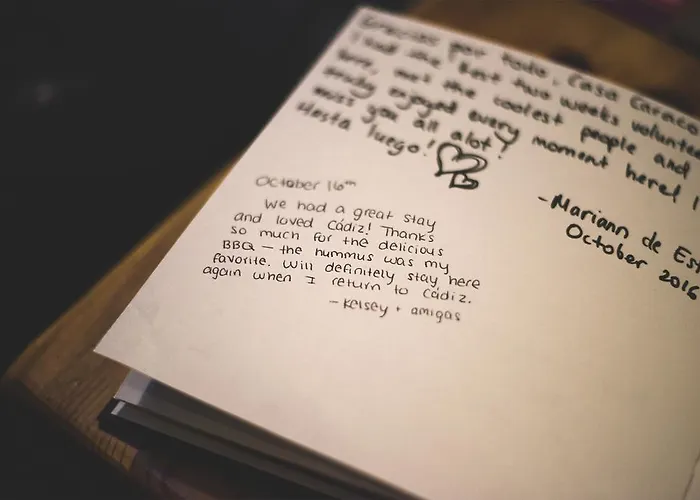 Gracias por todo, Casa Caracol
I had the best two weeks volunteer
here, met the coolest people and
really enjoyed every moment here! I
miss you all alot!
Hasta luego!
-Mariann de Est
October 2016
October 16th
We had a great stay
and loved Cádiz! Thanks
so much for the delicious
BBQ – the hummus was my
favorite. Will definitely stay here
again when I return to Cádiz.
- Kelsey + amigas